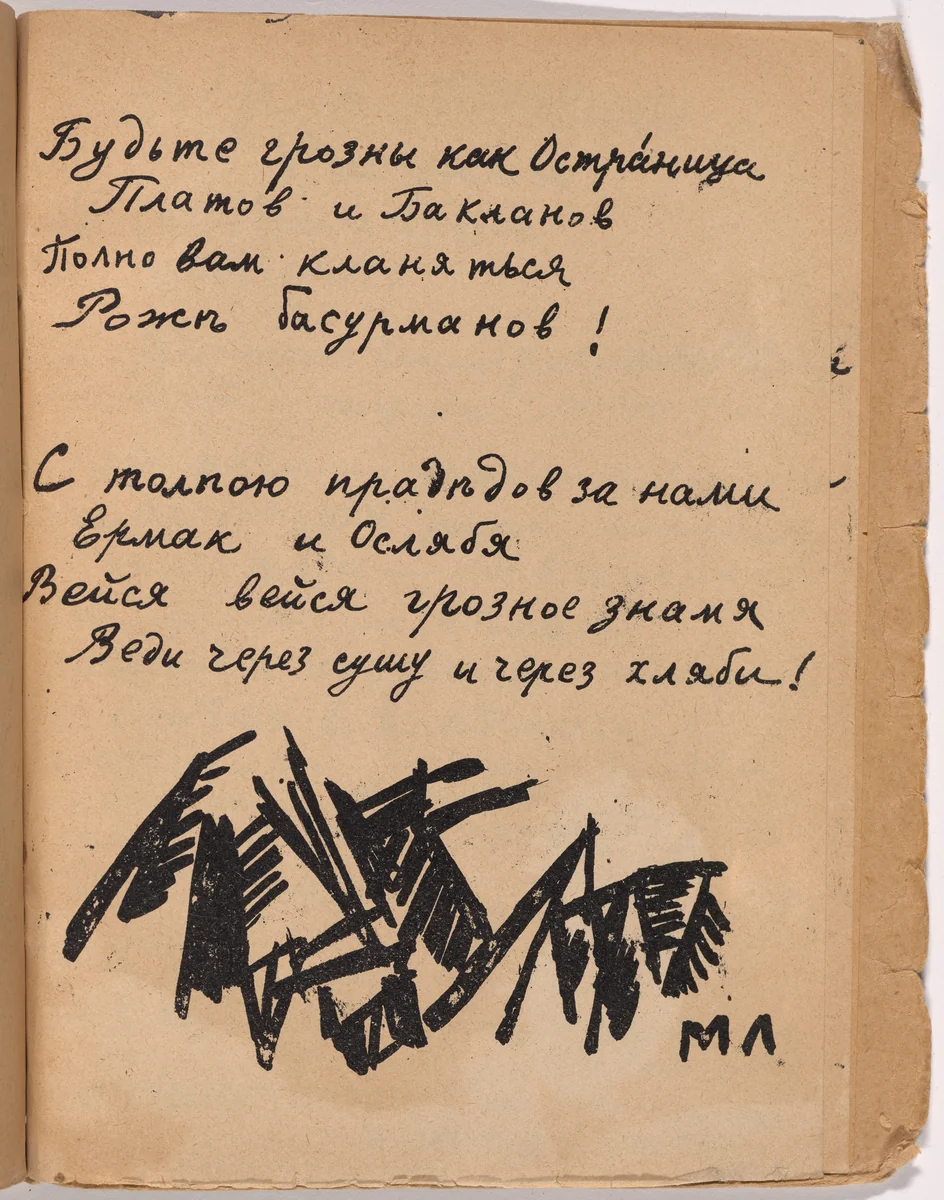 Будьте грозны как Остра́ница
Платов и Бакланов
Полно вам кланяться
Рожѣ басурманов !
С толпою прадѣдов за нами
Ермак и Ослябя
Вейся вейся грозное знамя
Веди через сушу и через хляби !
МЛ